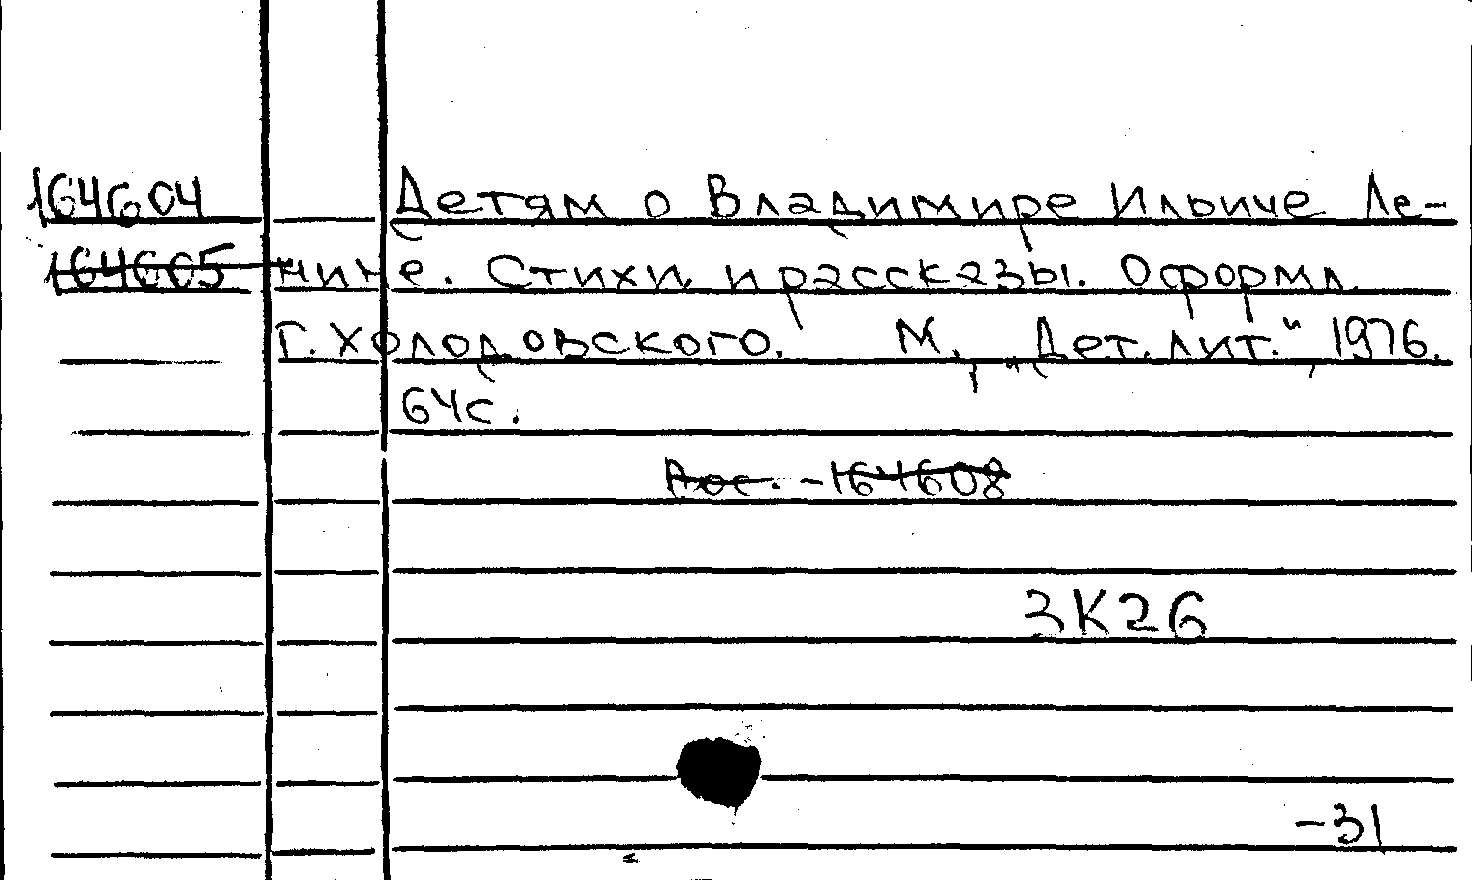 164604 Детям о Владимире Ильиче Ле-
164605 нине. Стихи и рассказы. Оформл.
Г. Холодовского. М., „Дет. лит.", 1976.
64с.
-164608
3К26
-31